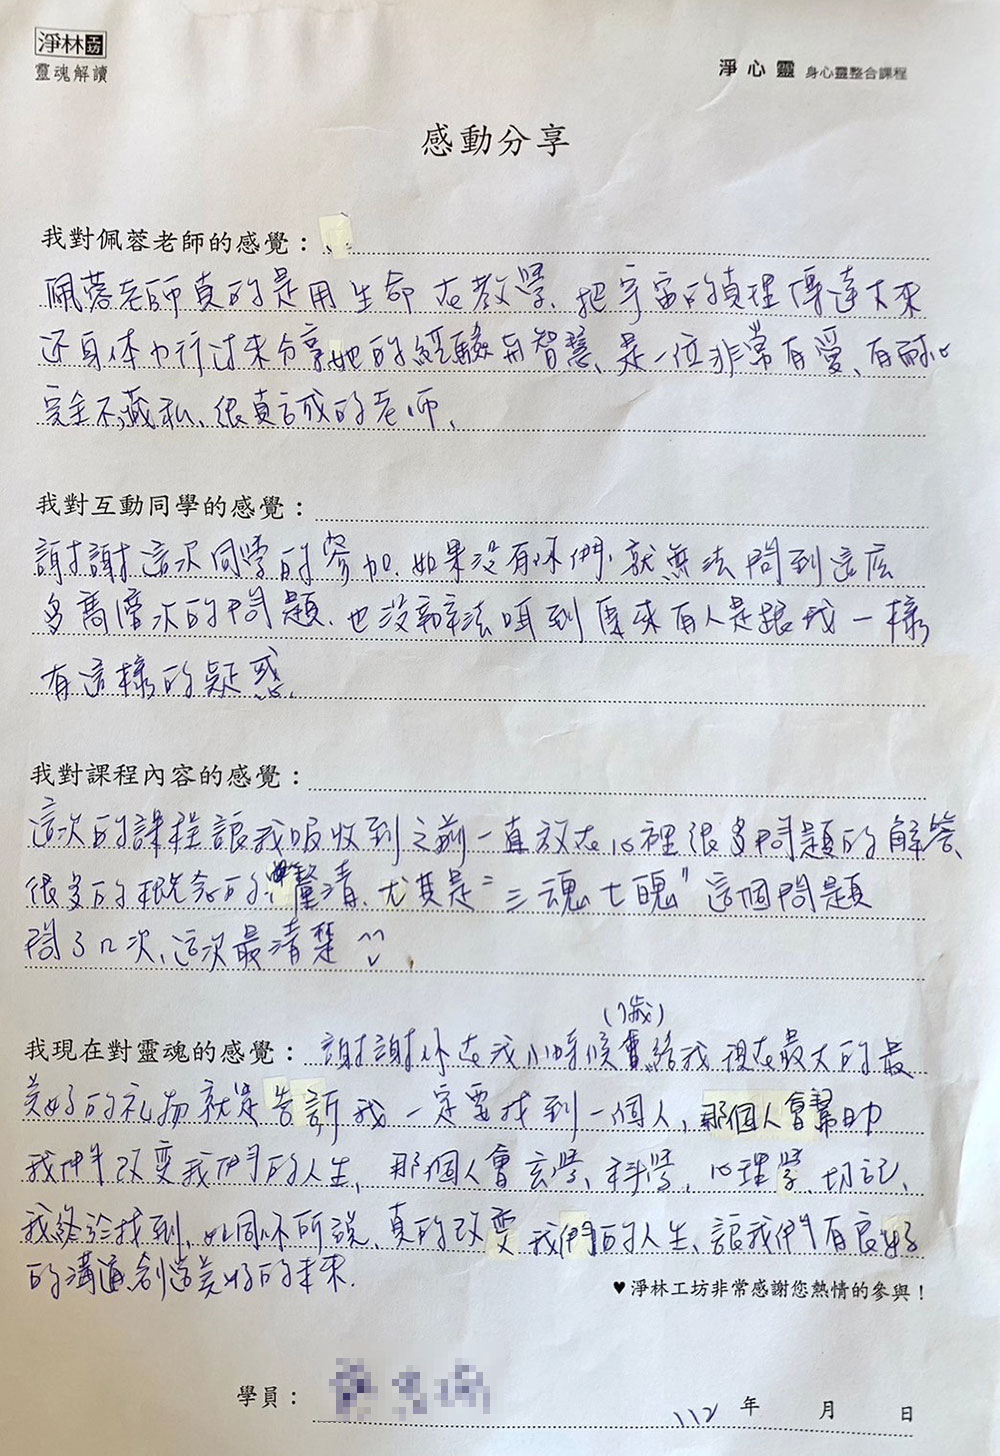 淨林工坊
靈魂解讀
淨心靈 身心靈整合課程
感動分享
我對佩蓉老師的感覺：
佩蓉老師真的是用生命在教學、把宇宙的真理傳達下來
還身体力行过來分享她的經驗與智慧、是一位非常有愛、有耐心
完全不藏私、很真誠的老师、
我對互動同學的感覺：
謝謝這次同學的參加、如果沒有你們、就無法問到這広
多高層次的問題、也沒辦法听到原來有人是跟我一樣
有這樣的疑惑、
我對課程內容的感覺：
這次的課程讓我吸收到之前一直放在心裡很多問題的解答、
很多的概念的釐清、尤其是"三魂七魄"這個問題
問了n次、這次最清楚
我現在對靈魂的感覺：謝謝你在我小時候(7歲)給我現在最大的最
美好的礼物就是告訴我一定要找到一個人，那個人會幫助
我們改變我們的人生、那個人會玄學、科學、心理學、切記、
我終於找到、如同你所說、真的改變我們的人生、讓我們有良好
的溝通創造美好的未來
♥淨林工坊非常感謝您熱情的參與！
學員：
112 年 月 日